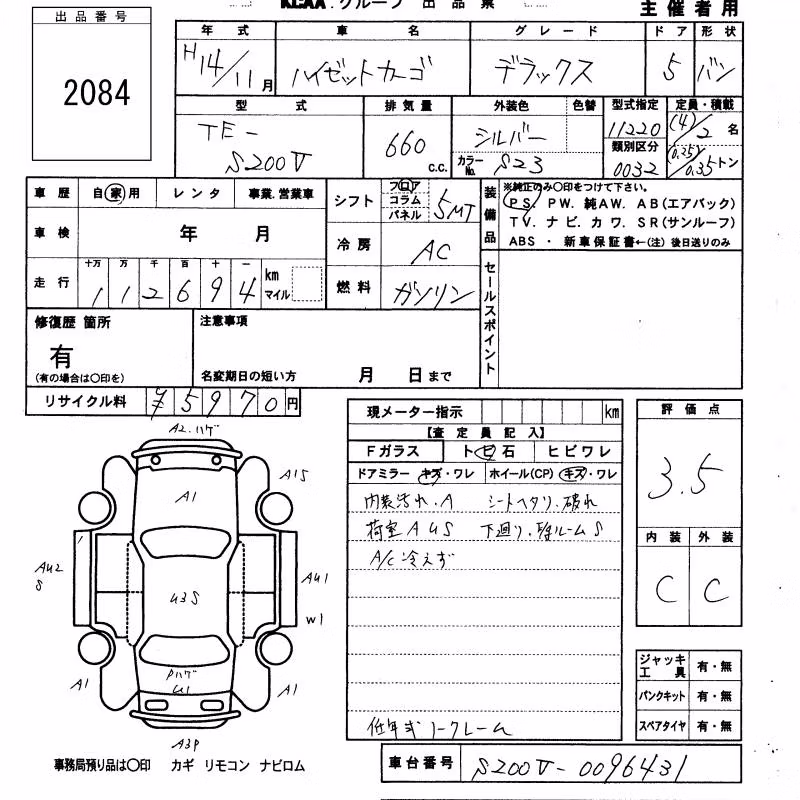 グループ 出品票
主催者用
出品番号
2084
年 式 車 名 グレード ドア 形状
H14/11月 ハイゼットカーゴ デラックス 5 バン
型 式 排気量 外装色 色替 型式指定 定員・積載
TE-
S200V
660 c.c.
シルバー
カラーNo. S23
11220
類別区分
0032
(4)/2 名
(0.25)/0.35トン
車歴 自家用 レンタ 事業.営業車
車検 年 月
走行 十万 万 千 百 十 一
112694 km マイル
シフト フロア コラム パネル 5MT
冷房 AC
燃料 ガソリン
装備品
※純正のみ〇印をつけて下さい。
PS. PW. 純AW. AB(エアバック)
TV. ナビ. カワ. SR(サンルーフ)
ABS ・ 新車保証書←(注) 後日送りのみ
セールスポイント
修復歴 箇所
有
(有の場合は〇印を)
注意事項
名変期日の短い方 月 日まで
リサイクル料 ¥5970円
現メーター指示 km
【査定員記入】
Fガラス トビ石 ヒビワレ
ドアミラー キズ・ワレ ホイール(CP) キズ・ワレ
内装汚れ.A シートヘタリ.破れ
荷室AUS 下廻り.EルームS
A/C冷えず
低年式ノークレーム
評価点
3.5
内装 外装
C C
ジャッキ工具 有・無
パンクキット 有・無
スペアタイヤ 有・無
A2.ハゲ
A1S
A1
AU2
S
U3S
AU1
W1
Pハゲ
U1
A1
A1
A3P
事務局預り品は〇印 カギ リモコン ナビロム
車台番号 S200V-0096431